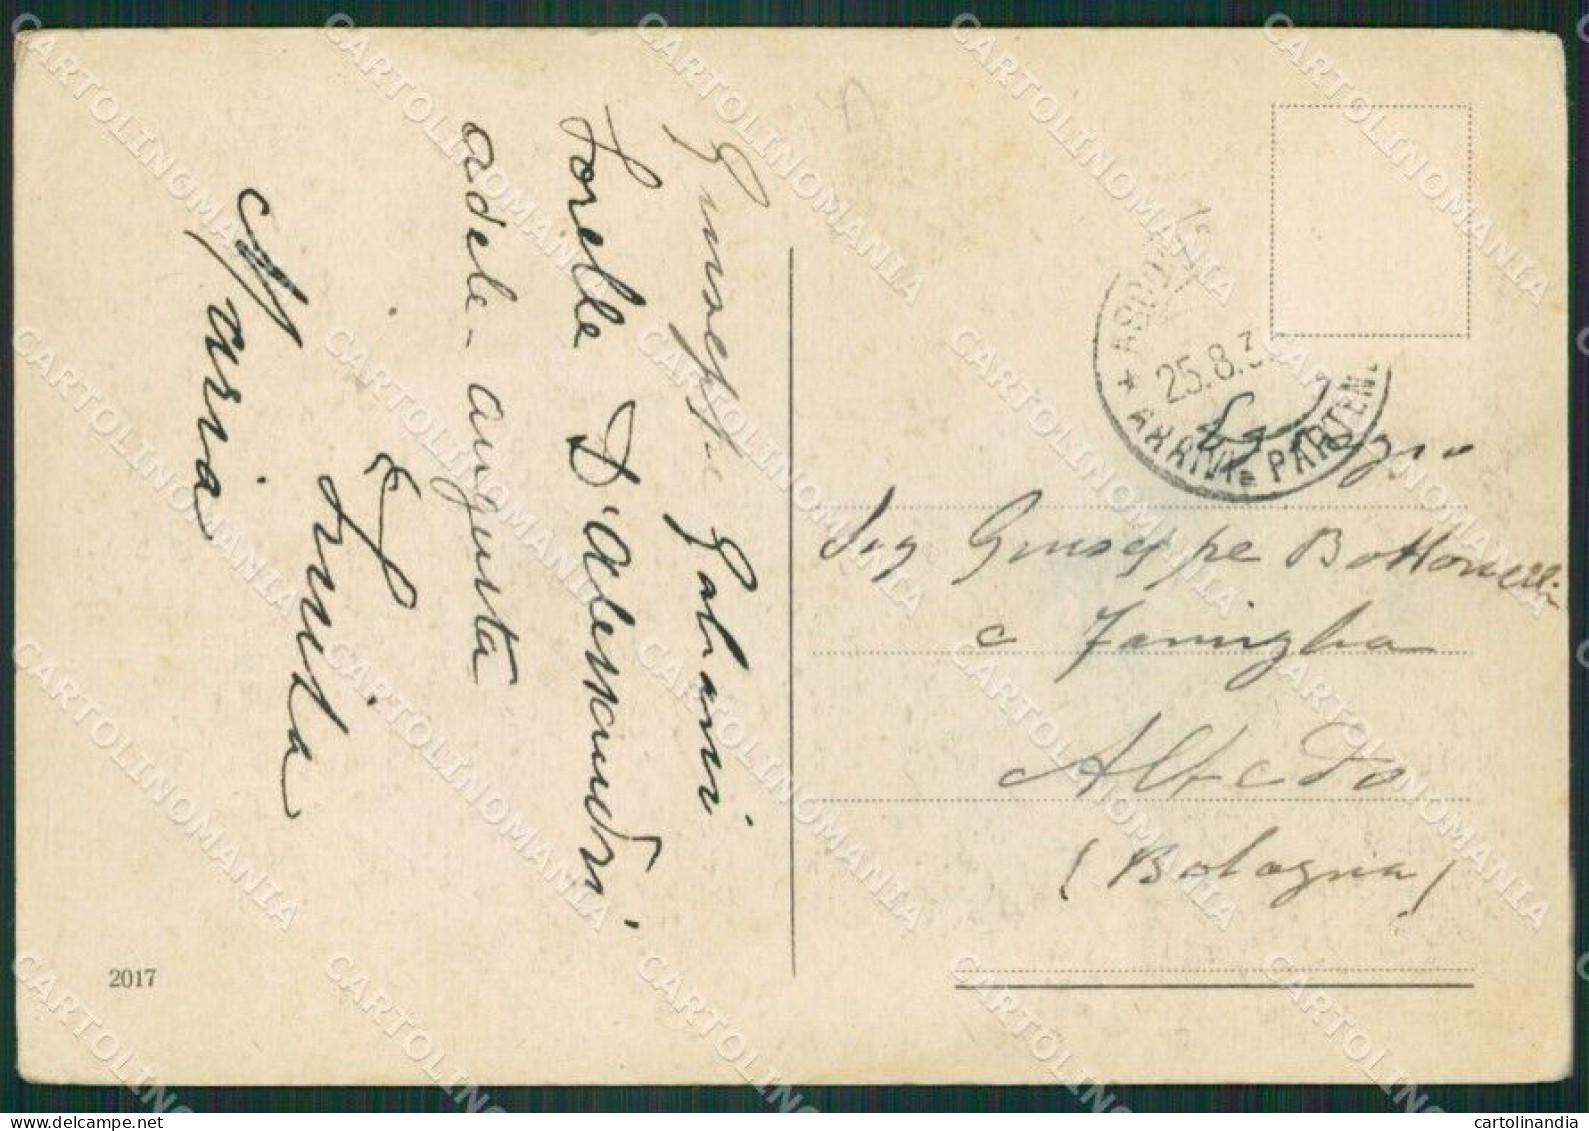 Giuseppe Galiani
Sorelle D'alessandri
adele - augusta
Ersilia
Maria
2017
25.8.3
ARRIVI e PARTEN
Eg
Sig Giuseppe Bottonelli
e Famiglia
Alfedo
(Bologna)
CARTOLINOMANIA
www.delcampe.net
cartolinandia